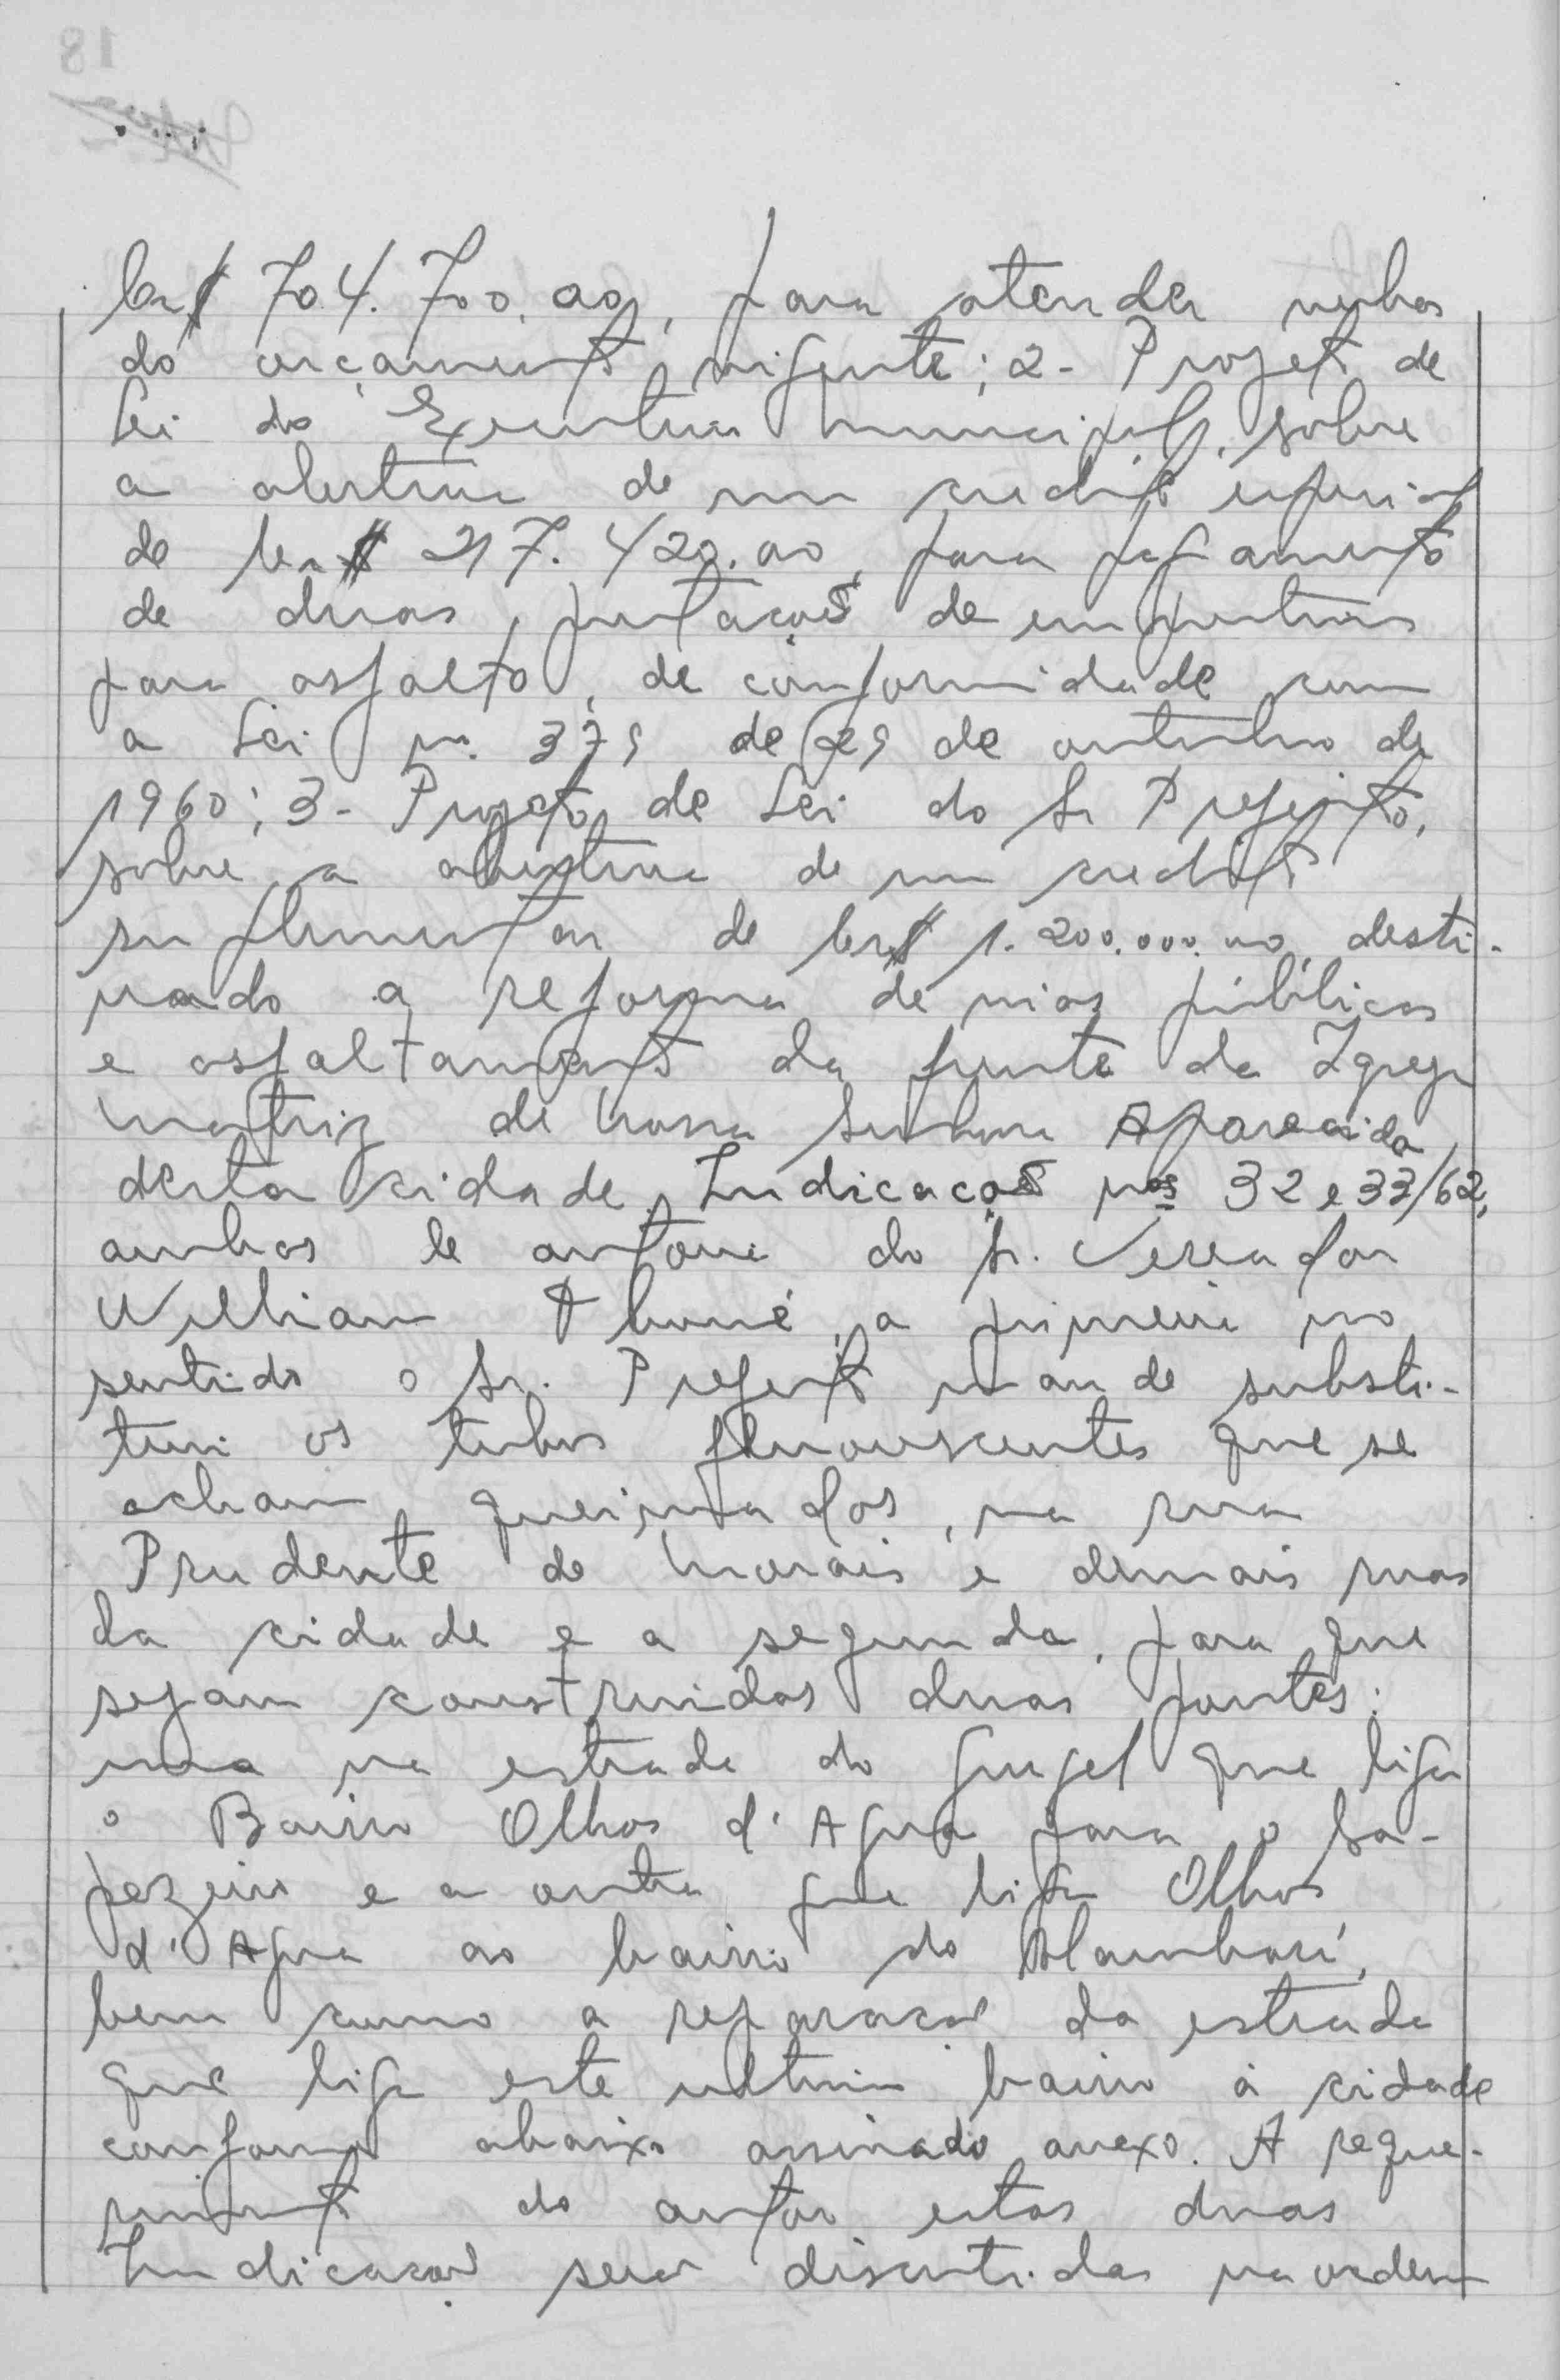 Cr$ 704.700,00, para atender verbas
do orçamento vigente; 2- Projeto de
Lei do Executivo Municipal, sobre
a abertura de um credito especial
de Cr$ 217.420,00, para pagamento
de duas prestações de emprestimos
para asfalto, de conformidade com
a Lei no. 379 de 29 de outubro de
1960; 3- Projeto de Lei do Sr Prefeito,
sobre a abertura de um credito
suplementar de Cr$ 1.200.000,00, desti-
nado a reforma de vias públicas
e asfaltamento da frente da Igreja
Matriz de Nossa Senhora Aparecida
desta cidade, Indicações nos 32 e 33/62,
ambas de autoria do Sr. Vereador
William Thomé, a primeira no
sentido o Sr. Prefeito mande substi-
tuir os tubos fluorescentes que se
acham queimados, na rua
Prudente de Morais e demais ruas
da cidade e a segunda, para que
sejam construidas duas pontes:
uma na estrada do Gurgel que liga
o Bairro Olhos d'Agua para o Sa-
pezeiro e a outra que liga Olhos
d'Agua ao bairro do Alambari,
bem como a reparação da estrada
que liga este ultimo bairro à cidade
conforme abaixo assinado anexo. A reque-
rimento do autor estas duas
Indicações serão discutidas na ordem